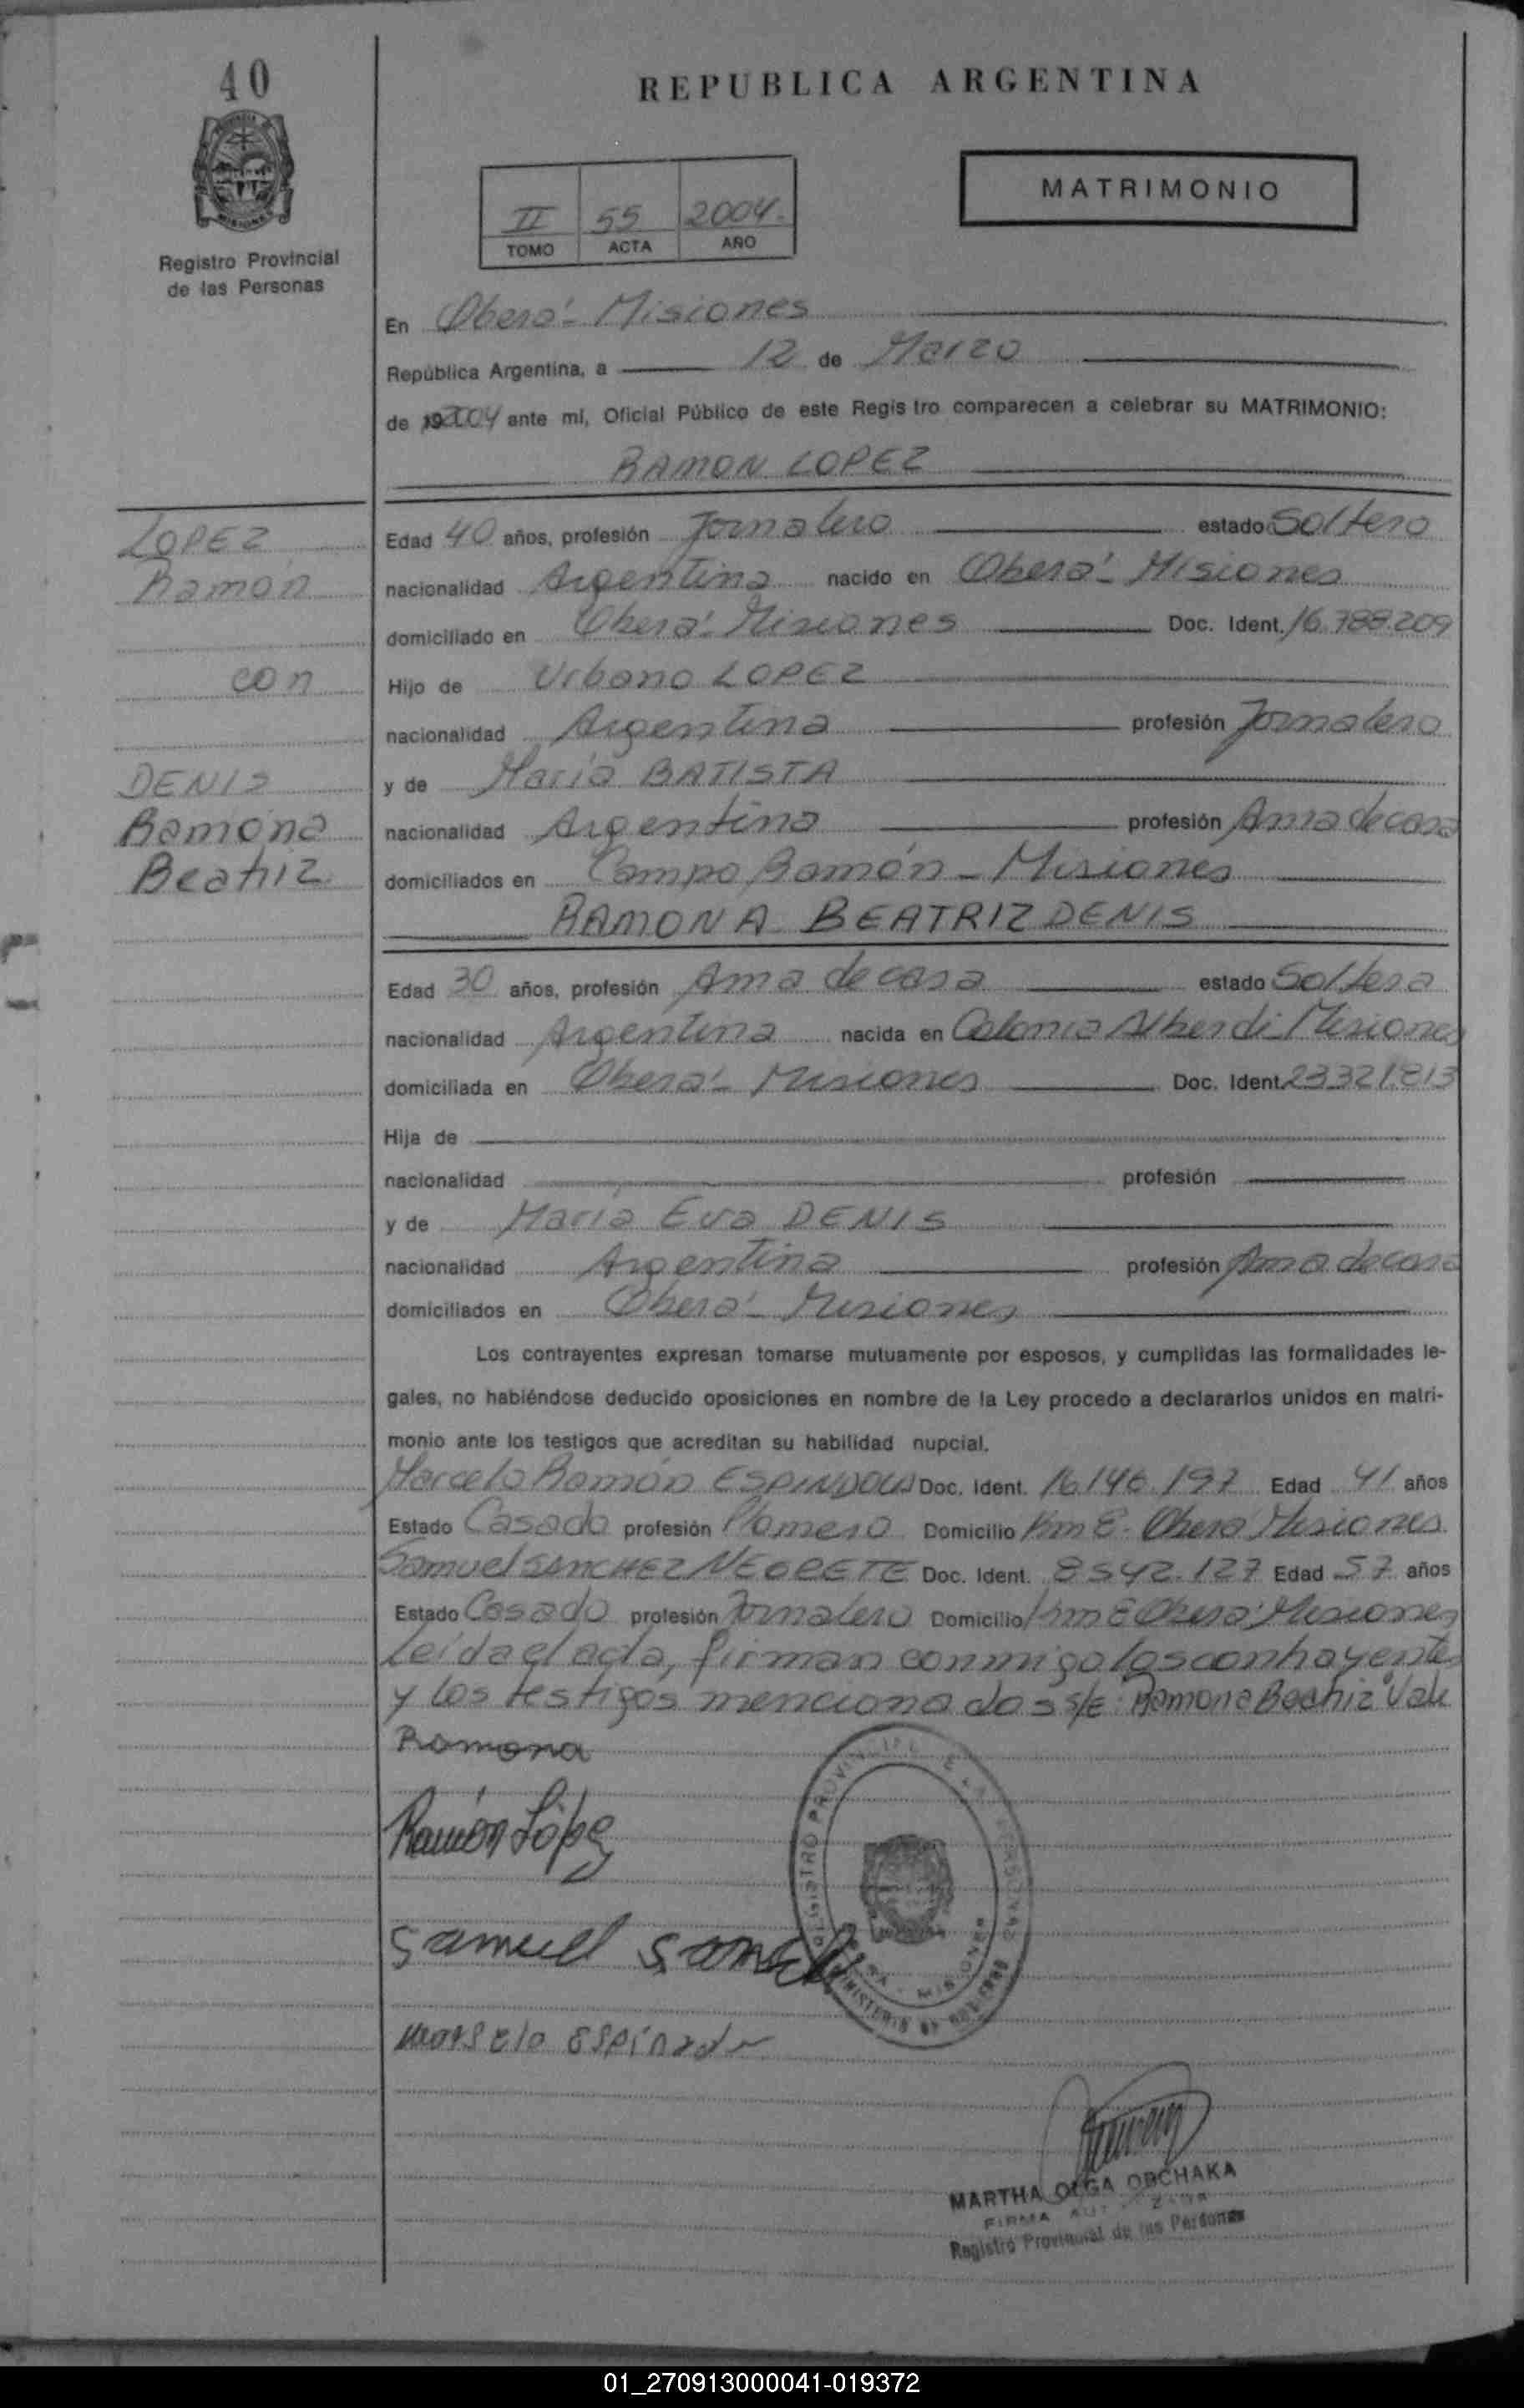 40
REPUBLICA ARGENTINA
MATRIMONIO
II 55 2004
TOMO ACTA AÑO
Registro Provincial
de las Personas
En Oberá - Misiones
República Argentina, a 12 de Marzo
de 2004 ante mi, Oficial Público de este Regis tro comparecen a celebrar su MATRIMONIO:
RAMON LOPEZ
LOPEZ
Ramón
con
DENIS
Ramona
Beatriz
Edad 40 años, profesión Jornalero estado Soltero
nacionalidad Argentina nacido en Oberá - Misiones
domiciliado en Oberá - Misiones Doc. Ident. 16.788.209
Hijo de Urbano LOPEZ
nacionalidad Argentina profesión Jornalero
y de María BATISTA
nacionalidad Argentina profesión Ama de casa
domiciliados en Campo Ramón - Misiones
RAMONA BEATRIZ DENIS
Edad 30 años, profesión Ama de casa estado Soltera
nacionalidad Argentina nacida en Colonia Alberdi - Misiones
domiciliada en Oberá - Misiones Doc. Ident. 23.321.813
Hija de
nacionalidad profesión
y de María Eva DENIS
nacionalidad Argentina profesión Ama de casa
domiciliados en Oberá - Misiones
Los contrayentes expresan tomarse mutuamente por esposos, y cumplidas las formalidades le-
gales, no habiéndose deducido oposiciones en nombre de la Ley procedo a declararlos unidos en matri-
monio ante los testigos que acreditan su habilidad nupcial.
Marcelo Ramón ESPINDOLA Doc. Ident. 16.146.197 Edad 41 años
Estado Casado profesión Plomero Domicilio Km 8 - Oberá Misiones
Samuel SANCHEZ NEGRETE Doc. Ident. 8542.127 Edad 57 años
Estado Casado profesión Jornalero Domicilio Km 8 Oberá - Misiones
Leída el acta, firman conmigo los contrayentes
y los testigos mencionados s/E: Ramona Beatriz Vale
Ramona
Ramón López
Samuel
Marselo
MARTHA OLGA OBCHAKA
FIRMA
Registro Provincial de las Personas
01_270913000041-019372